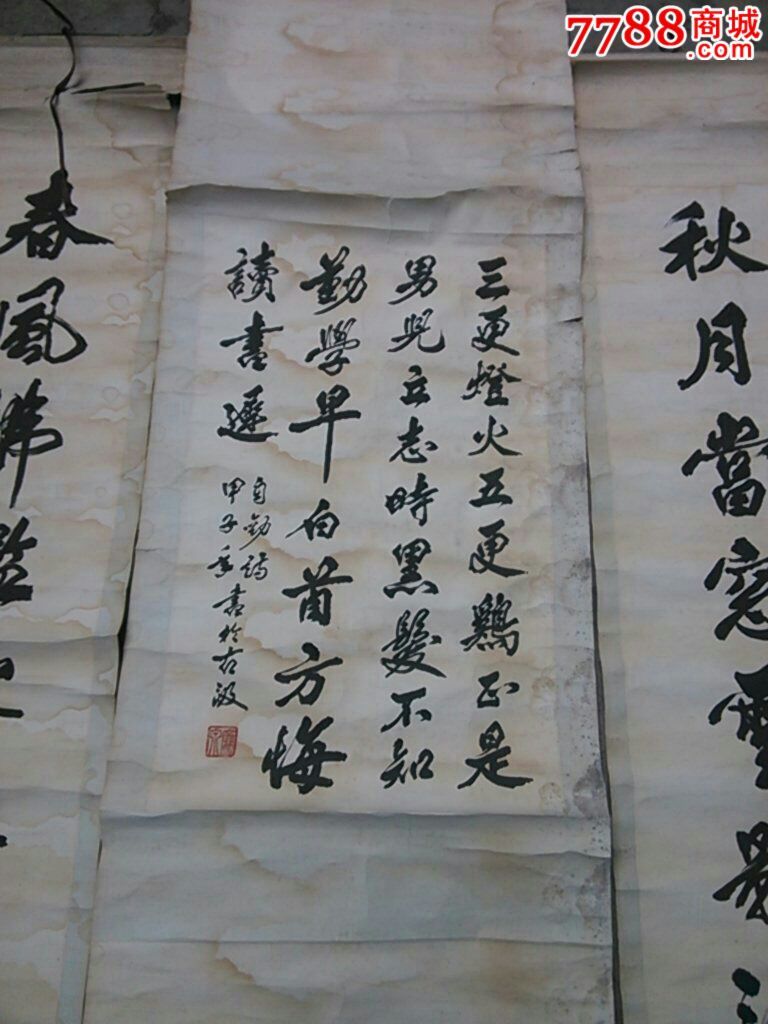 7788商城
.com
秋月當窓雲影
三更燈火五更鷄正是
男児立志時黑髮不知
勤學早白首方悔
讀書遲
自勸詩
甲子年書於古汲
春風拂